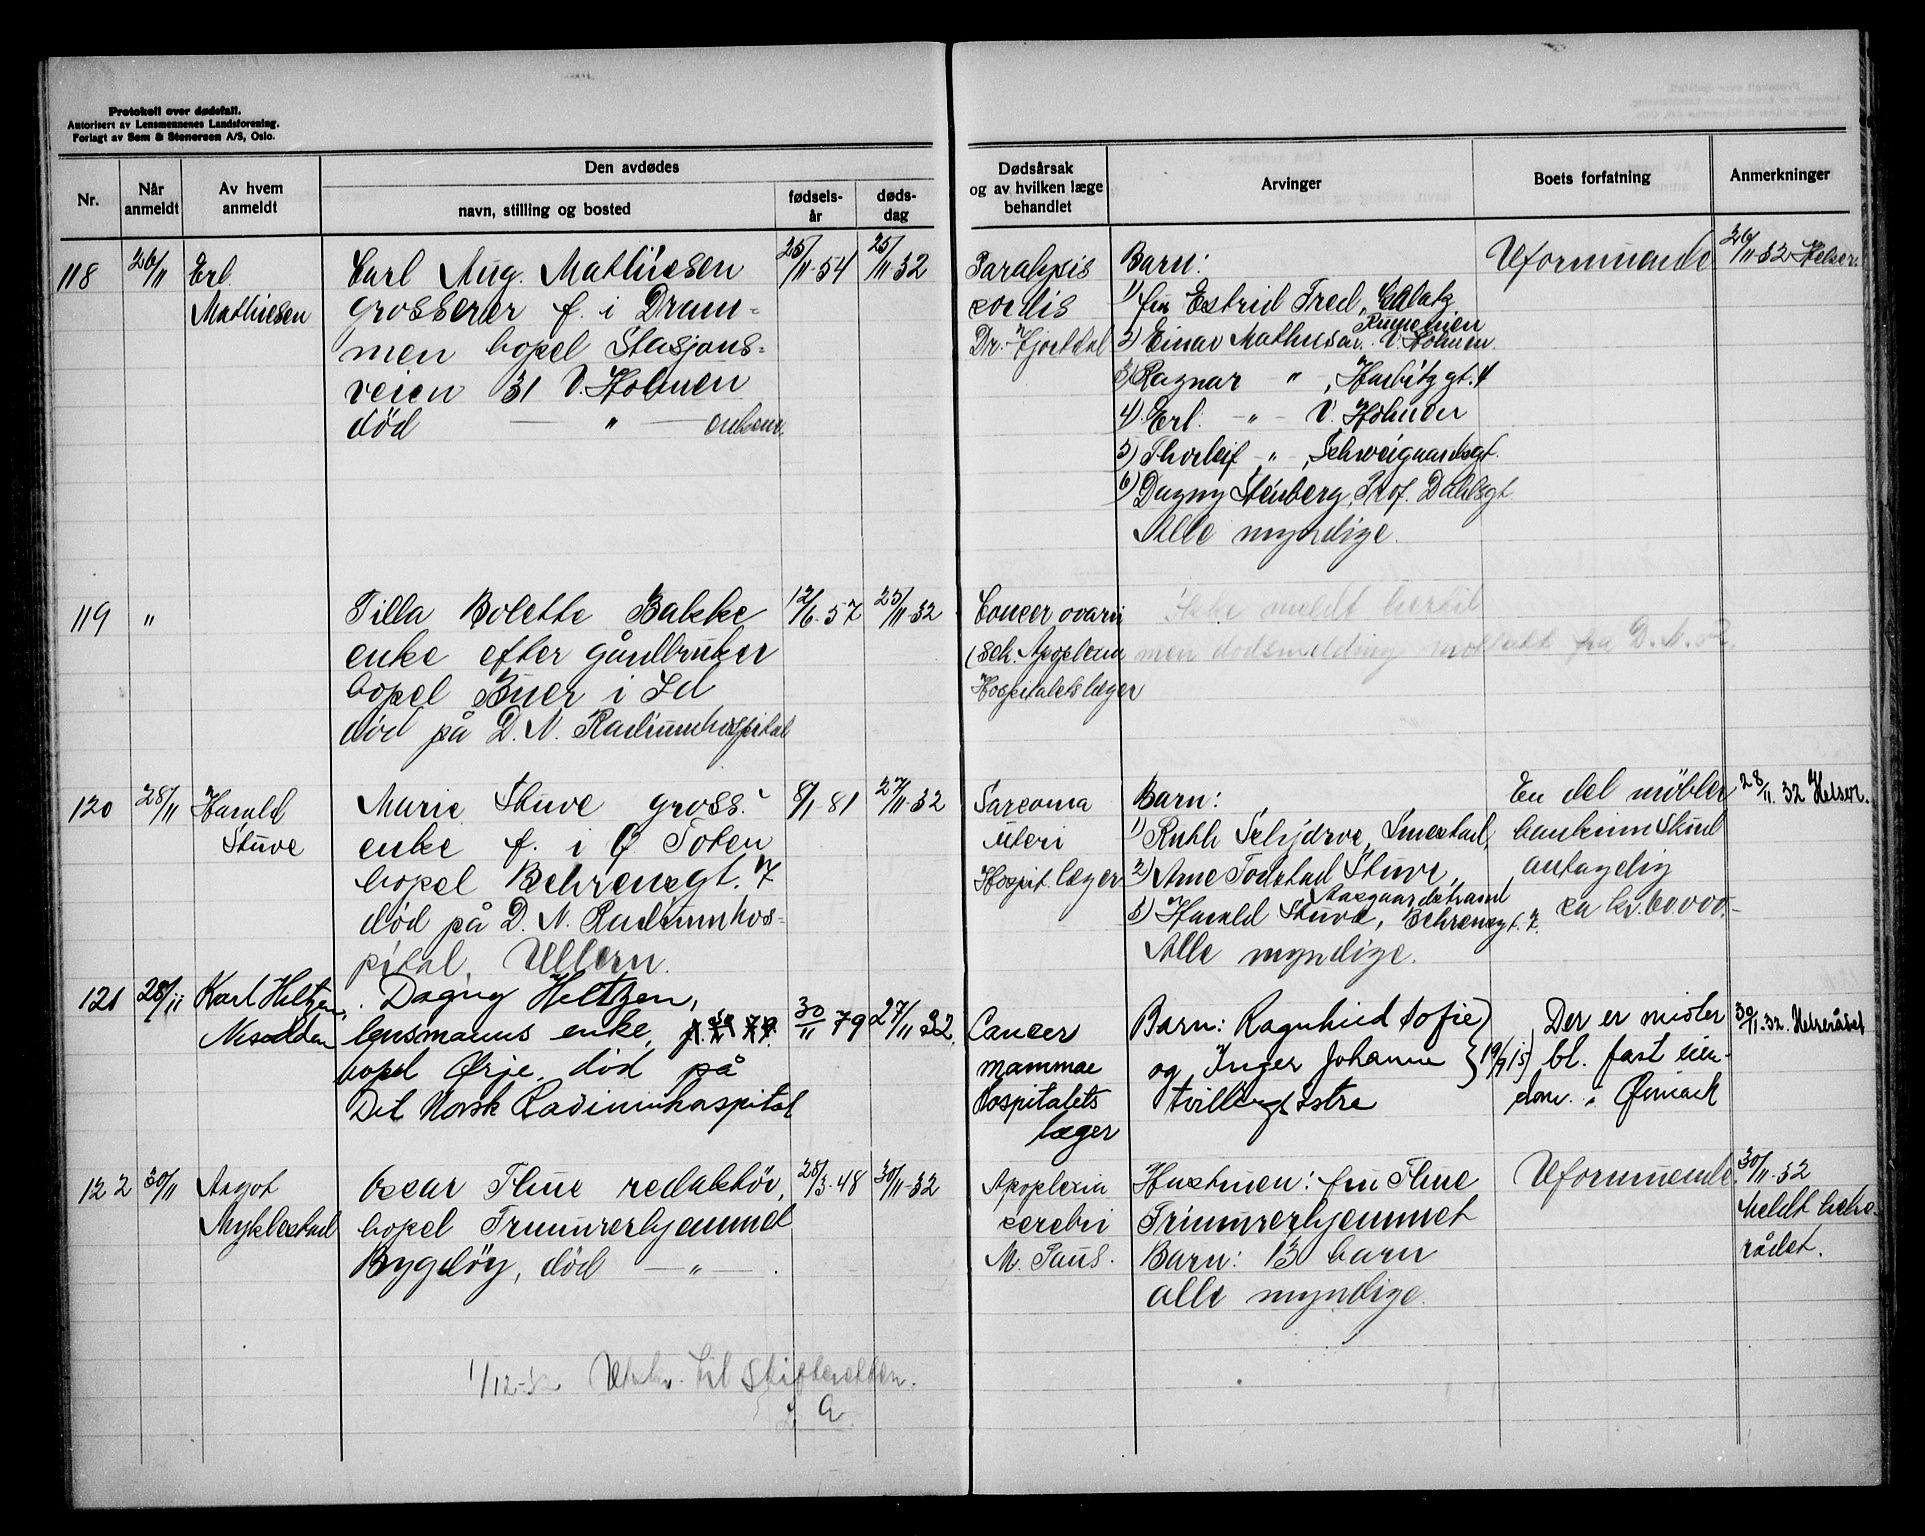 Protokoll over dødsfall.
Autorisert av Lensmennenes Landsforening.
Forlagt av Sem & Stenersen A/S, Oslo.
Nr.
Når anmeldt
Av hvem anmeldt
Den avdødes
navn, stilling og bosted
fødsels-år
døds-dag
Dødsårsak og av hvilken læge behandlet
Arvinger
Boets forfatning
Anmerkninger
118
26/11
Erl.
Mathiesen
Carl Aug. Mathiesen
grosserer f. i Dram-
men bopel Stasjons-
veien 31 V. Holmen
død — " —
25/11-54
25/11-32
Paralysis
cordis
Dr.
Barn:
1) fru Estrid Fred, Galatz
Rumenien
2) Einar Mathiesen V. Holmen
3) Ragnar - " - , Harbitzgt. 4
4) Erl. - " - V. Holmen
5) Thorleif - " - , Schweigaardsgt.
6) Dagny Stenberg, Prof. Dahlsgt.
Alle myndige.
Uformuende
26/11-32 Helser.
119
"
Tilla Bolette Bakke
enke efter gårdbruker
bopel Buer i Id
død på D. N. Radiumhospital
12/6-57
25/11-32
Cancer ovarii
(Sch. Apoplexia
Hospitalets læger
Ikke meldt hertil
men dødsmelding mottatt fra D. N. R.
120
28/11
Harald
Stuve
Marie Stuve gross.
enke f. i Ø. Toten
bopel Behrensgt. 7
død på D. N. Radiumhos-
pital, Ullern.
8/1-81
27/11-32
Sarcoma
uteri
Hospit. læger
Barn:
1) Ruth Schjørve, Smestad,
2) Arne Todstad Stuve,
Aasgaardstrand
3) Harald Stuve, Behrensgt. 7.
Alle myndige.
En del møbler
bankinnskud
antagelig
ca kr. 60000,-
28/11. 32 Helser.
121
28/11
Karl Heltzen,
Nesodden
Dagny Heltzen,
lensmanns enke,
bopel Ørje. død på
Det Norsk Radiumhospital
30/11 79
27/11 32.
Cancer
mammae
Hospitalets
læger
Barn: Ragnhild Sofie
og Inger Johanne } 19/9 15
tvillingsøstre
Der er midler
bl. fast eien-
dom i Øimark
30/11-32. Helserådet
122
30/11
Aagot
Myklestad
Oscar Thue redaktør,
bopel Frimurerhjemmet
Bygdøy, død — " — .
25/3-48
30/11-32
Apoplexia
cerebri
M. Paus.
Hustruen: fru Thue
Frimurerhjemmet
Barn: 13 barn
alle myndige.
Uformuende
30/11-32
Meldt helse-
rådet.
1/12-32 Utskr. til Skifteretten.